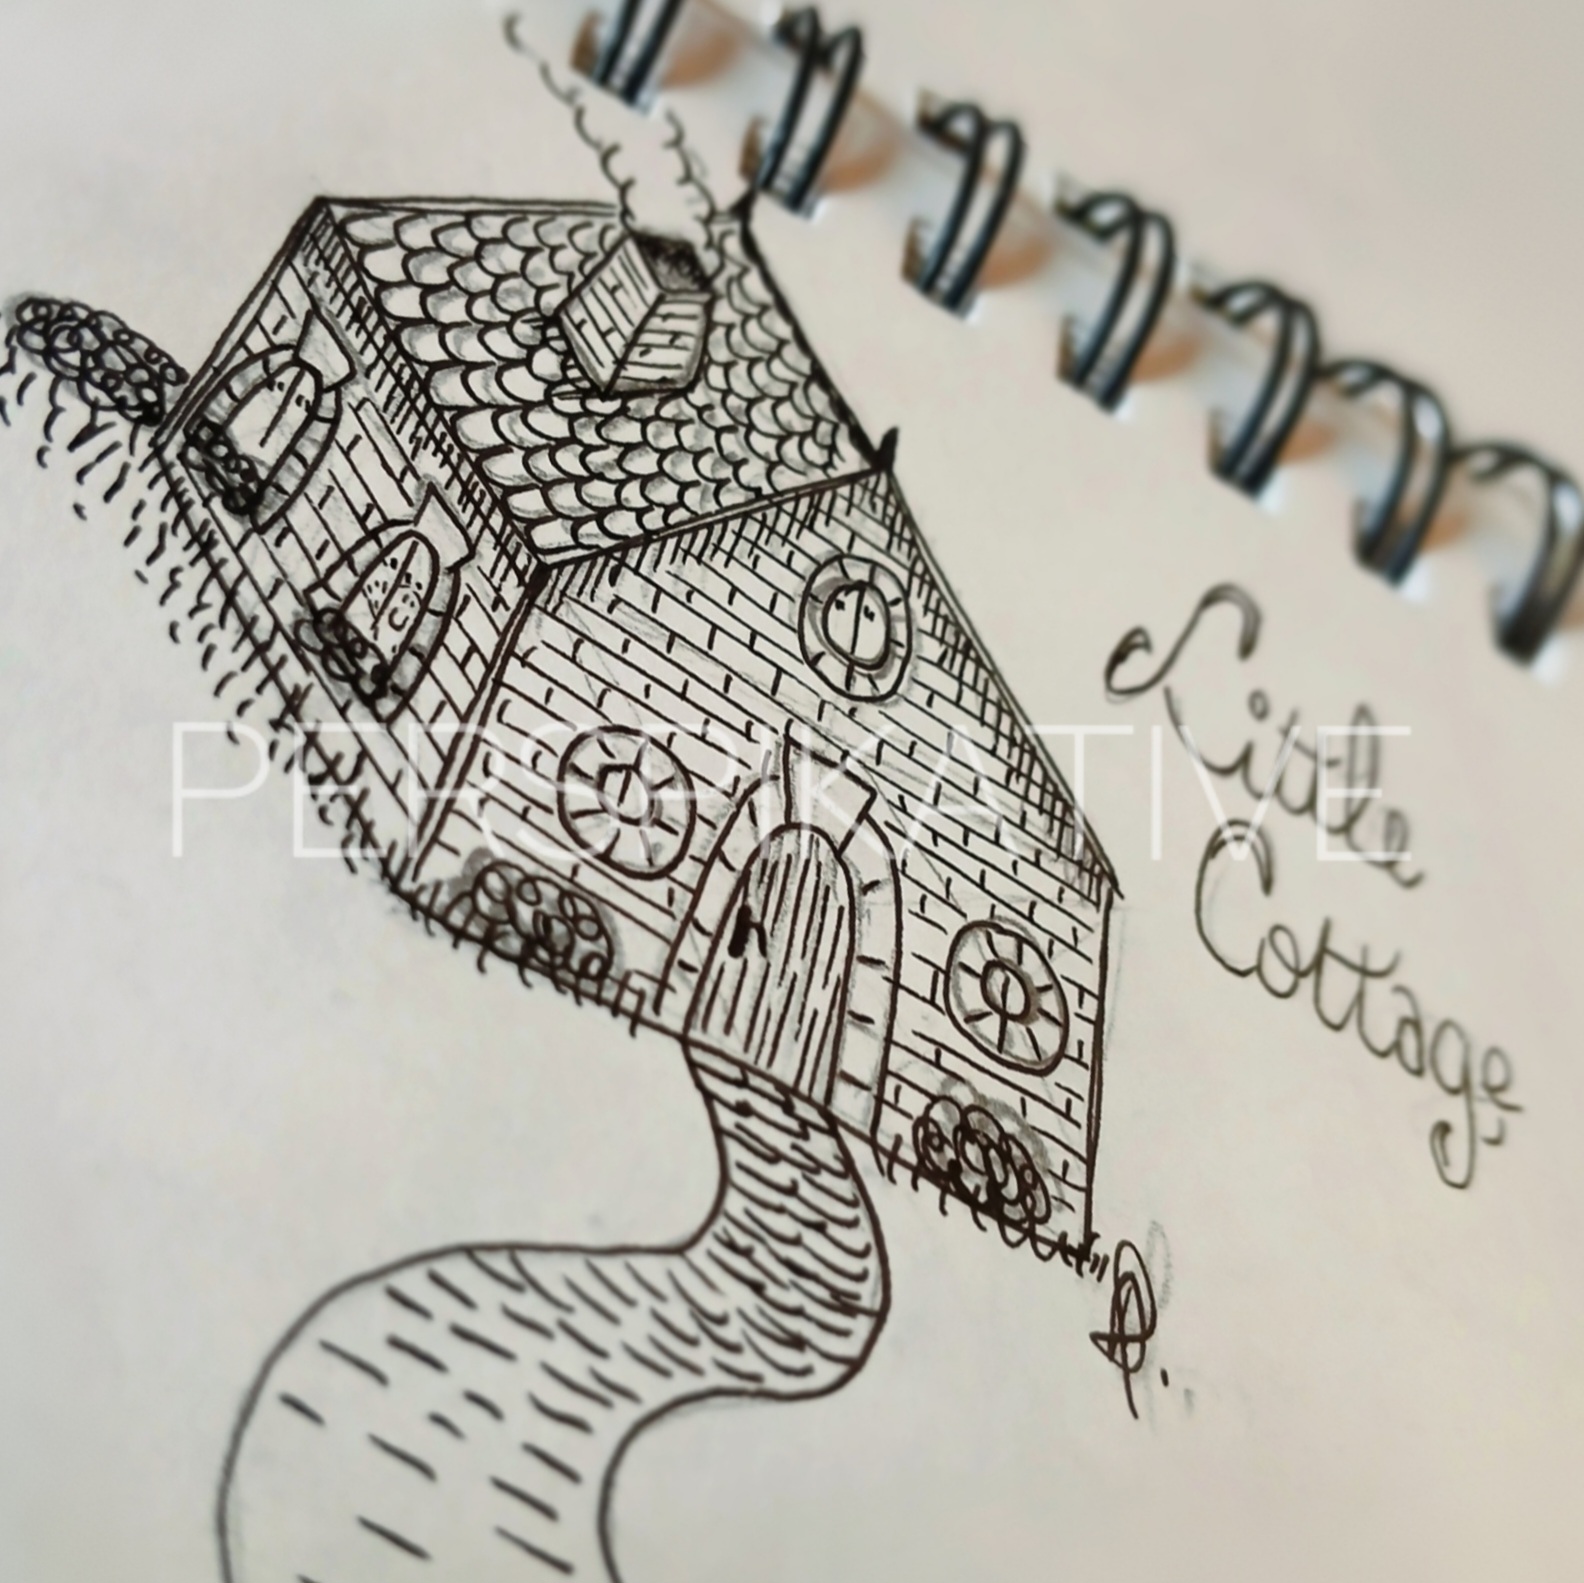 Little
Cottage
PERSPIKATIVE